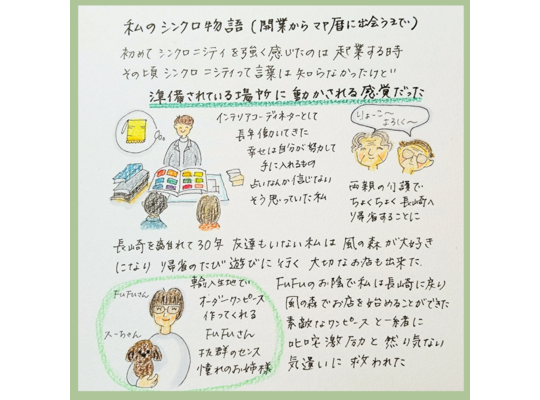 私のシンクロ物語(開業からマヤ暦に出会うまで)
初めてシンクロニシティを強く感じたのは 起業する時
その頃シンクロニシティって言葉は知らなかったけど
準備されている場所に動かされる感覚だった
インテリアコーディネーターとして
長年働いてきた
幸せは自分が努力して
手に入れるもの
占いなんか信じない
そう思っていた私
りょーこ〜
よろしく〜
両親の介護で
ちょくちょく長崎へ
帰省することに
長崎を離れて30年 友達もいない私は 風の森が大好き
になり 帰省のたび遊びに行く 大切なお店も出来た
FuFuさん
スーちゃん
輸入生地で
オーダーワンピース
作ってくれる
FuFuさん
抜群のセンス
憧れのお姉様
FuFuのお陰で私は長崎に戻り
風の森でお店を始めることができた
素敵なワンピースと一緒に
叱咤激励と然り気ない
気遣いに救われた